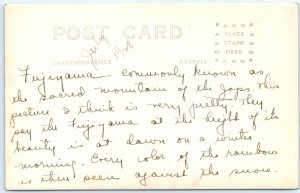 POST CARD
PLACE
STAMP
HERE
CORRESPONDENCE
ADDRESS
1928
Fujiyama commonly known as
the sacred mountain of the Japs. This
picture I think is very pretty. They
say the Fujiyama at the height of its
beauty is at dawn on a winter
morning. Every color of the rainbow
is then seen against the snow.